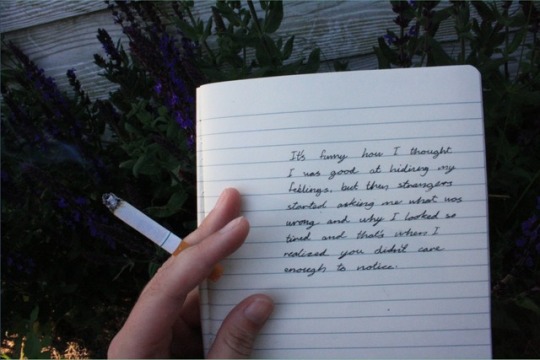 It's funny how I thought
I was good at hiding my
feelings, but then strangers
started asking me what was
wrong and why I looked so
tired and that's when I
realized you didn't care
enough to notice.